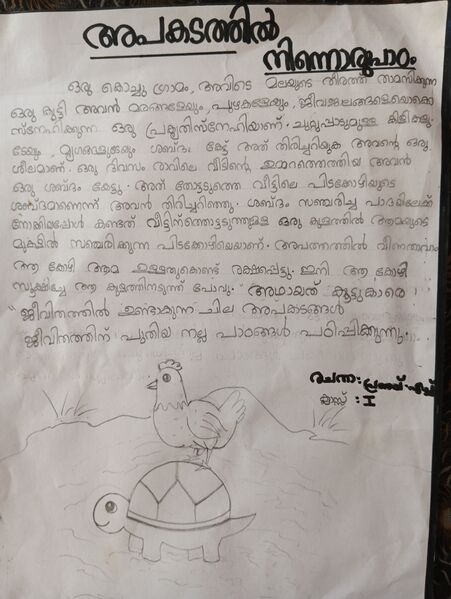 അപകടത്തിൽ
നിന്നൊരുപാഠം
ഒരു കൊച്ചു ഗ്രാമം, അവിടെ മലയുടെ തീരത്ത് താമസിക്കുന്ന
ഒരു കുട്ടി അവൻ മരങ്ങളേയും, പുഴകളേയും, ജീവജാലങ്ങളെയൊക്കെ
സ്നേഹിക്കുന്ന ഒരു പ്രകൃതിസ്നേഹിയാണ്. ചുറ്റുപ്പാടുമുള്ള കിളികളു-
ടേയും, മൃഗങ്ങളുടേയും ശബ്ദം കേട്ട് അത് തിരിച്ചറിയുക അവന്റെ ഒരു
ശീലമാണ്. ഒരു ദിവസം രാവിലെ വീടിന്റെ ഉമ്മറത്തെത്തിയ അവൻ
ഒരു ശബ്ദം കേട്ടു. അത് തോട്ടടുത്തെ വീട്ടിലെ പിടക്കോഴിയുടെ
ശബ്ദമാണെന്ന് അവൻ തിരിച്ചറിഞ്ഞു. ശബ്ദം സഞ്ചരിച്ച പാതയിലേക്ക്
നോക്കിയപ്പോൾ കണ്ടത് വീട്ടിന്തൊട്ടടുത്തുള്ള ഒരു കുളത്തിൽ ആമയുടെ
മുകളിൽ സഞ്ചരിക്കുന്ന പിടക്കോഴിയെയാണ്. അപകടത്തിൽ വീണതാവാം
ആ കോഴി ആമ ഉള്ളതുകൊണ്ട് രക്ഷപ്പെട്ടു. ഇനി ആ കോഴി
സൂക്ഷിച്ചേ ആ കുളത്തിനടുത്ത് പോവൂ. അതായത് കൂട്ടുകാരെ
"ജീവിതത്തിൽ ഉണ്ടാകുന്ന ചില അപകടങ്ങൾ
ജീവിതത്തിന് പുതിയ നല്ല പാഠങ്ങൾ പഠിപ്പിക്കുന്നു.
രചന : പ്രണവ് എച്ച്
ക്ലാസ്സ് : I